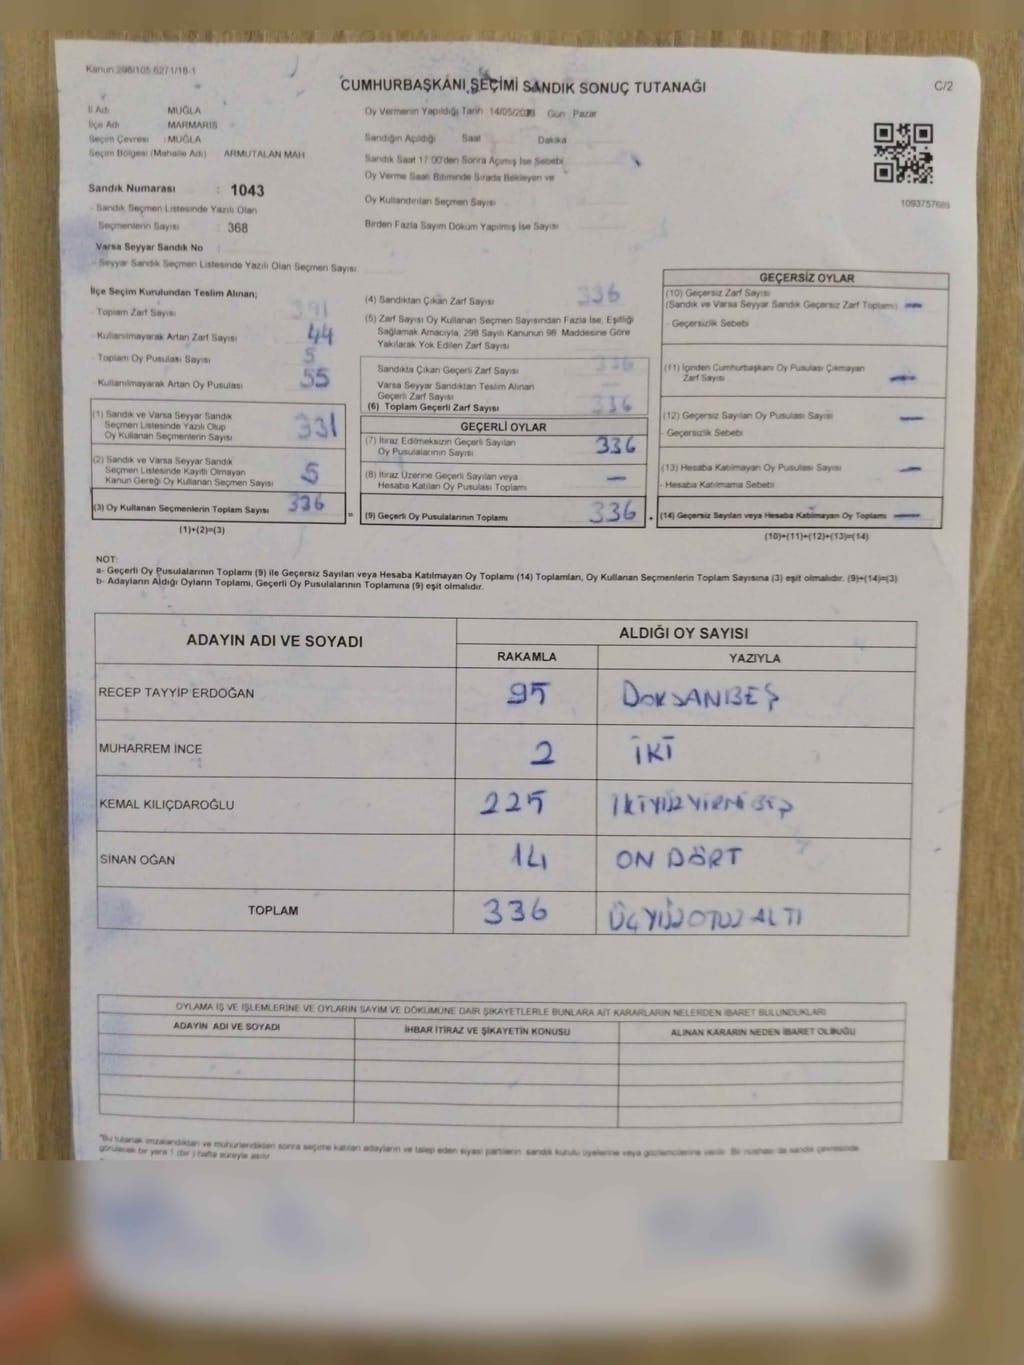 Kanun 298/105 6271/18-1
CUMHURBAŞKANI SEÇİMİ SANDIK SONUÇ TUTANAĞI
C/2
İl Adı MUĞLA
İlçe Adı MARMARİS
Seçim Çevresi : MUĞLA
Seçim Bölgesi (Mahalle Adı) ARMUTALAN MAH
Oy Vermenin Yapıldığı Tarih 14/05/2023 Gün Pazar
Sandığın Açıldığı Saat Dakika
Sandık Saat 17.00'den Sonra Açımış İse Sebebi
Oy Verme Saati Bitiminde Sırada Bekleyen ve
Oy Kullandırılan Seçmen Sayısı
Birden Fazla Sayım Döküm Yapılmış İse Sayısı
1093757689
Sandık Numarası : 1043
- Sandık Seçmen Listesinde Yazılı Olan
Seçmenlerin Sayısı : 368
Varsa Seyyar Sandık No
- Seyyar Sandık Seçmen Listesinde Yazılı Olan Seçmen Sayısı
İlçe Seçim Kurulundan Teslim Alınan;
- Toplam Zarf Sayısı 391
- Kullanılmayarak Artan Zarf Sayısı 44
- Toplam Oy Pusulası Sayısı
- Kullanılmayarak Artan Oy Pusulası 55
(1) Sandık ve Varsa Seyyar Sandık
Seçmen Listesinde Yazılı Olup
Oy Kullanan Seçmenlerin Sayısı 331
(2) Sandık ve Varsa Seyyar Sandık
Seçmen Listesinde Kayıtlı Olmayan
Kanun Gereği Oy Kullanan Seçmen Sayısı 5
(3) Oy Kullanan Seçmenlerin Toplam Sayısı 336
(1)+(2)=(3)
(4) Sandıktan Çıkan Zarf Sayısı 336
(5) Zarf Sayısı Oy Kullanan Seçmen Sayısından Fazla İse, Eşitliği
Sağlamak Amacıyla, 298 Sayılı Kanunun 98. Maddesine Göre
Yakılarak Yok Edilen Zarf Sayısı
Sandıkta Çıkan Geçerli Zarf Sayısı 336
Varsa Seyyar Sandıktan Teslim Alınan
Geçerli Zarf Sayısı —
(6) Toplam Geçerli Zarf Sayısı 336
GEÇERLİ OYLAR
(7) İtiraz Edilmeksizin Geçerli Sayılan
Oy Pusulalarının Sayısı 336
(8) İtiraz Üzerine Geçerli Sayılan veya
Hesaba Katılan Oy Pusulası Toplamı —
= (9) Geçerli Oy Pusulalarının Toplamı 336 +
GEÇERSİZ OYLAR
(10) Geçersiz Zarf Sayısı
(Sandık ve Varsa Seyyar Sandık Geçersiz Zarf Toplamı) —
- Geçersizlik Sebebi
(11) İçinden Cumhurbaşkanı Oy Pusulası Çıkmayan
Zarf Sayısı —
(12) Geçersiz Sayılan Oy Pusulası Sayısı —
- Geçersizlik Sebebi
(13) Hesaba Katılmayan Oy Pusulası Sayısı —
- Hesaba Katılmama Sebebi
(14) Geçersiz Sayılan veya Hesaba Katılmayan Oy Toplamı —
(10)+(11)+(12)+(13)=(14)
NOT:
a- Geçerli Oy Pusulalarının Toplamı (9) ile Geçersiz Sayılan veya Hesaba Katılmayan Oy Toplamı (14) Toplamları, Oy Kullanan Seçmenlerin Toplam Sayısına (3) eşit olmalıdır. (9)+(14)=(3)
b- Adayların Aldığı Oyların Toplamı, Geçerli Oy Pusulalarının Toplamına (9) eşit olmalıdır.
ADAYIN ADI VE SOYADI ALDIĞI OY SAYISI
RAKAMLA YAZIYLA
RECEP TAYYİP ERDOĞAN 95 DOKSANBEŞ
MUHARREM İNCE 2 İKİ
KEMAL KILIÇDAROĞLU 225 İKİYÜZYİRMİBEŞ
SİNAN OĞAN 14 ON DÖRT
TOPLAM 336 ÜÇYÜZOTUZALTI
OYLAMA İŞ VE İŞLEMLERİNE VE OYLARIN SAYIM VE DÖKÜMÜNE DAİR ŞİKAYETLERLE BUNLARA AİT KARARLARIN NELERDEN İBARET BULUNDUKLARI
ADAYIN ADI VE SOYADI İHBAR İTİRAZ VE ŞİKAYETİN KONUSU ALINAN KARARIN NEDEN İBARET OLDUĞU
*Bu tutanak imzalandıktan ve mühürlendikten sonra seçime katılan adayların ve talep eden siyasi partilerin sandık kurulu üyelerine veya gözlemcilerine verilir. Bir nüshası da sandık çevresinde
görülecek bir yere 1 (bir) hafta süreyle asılır.